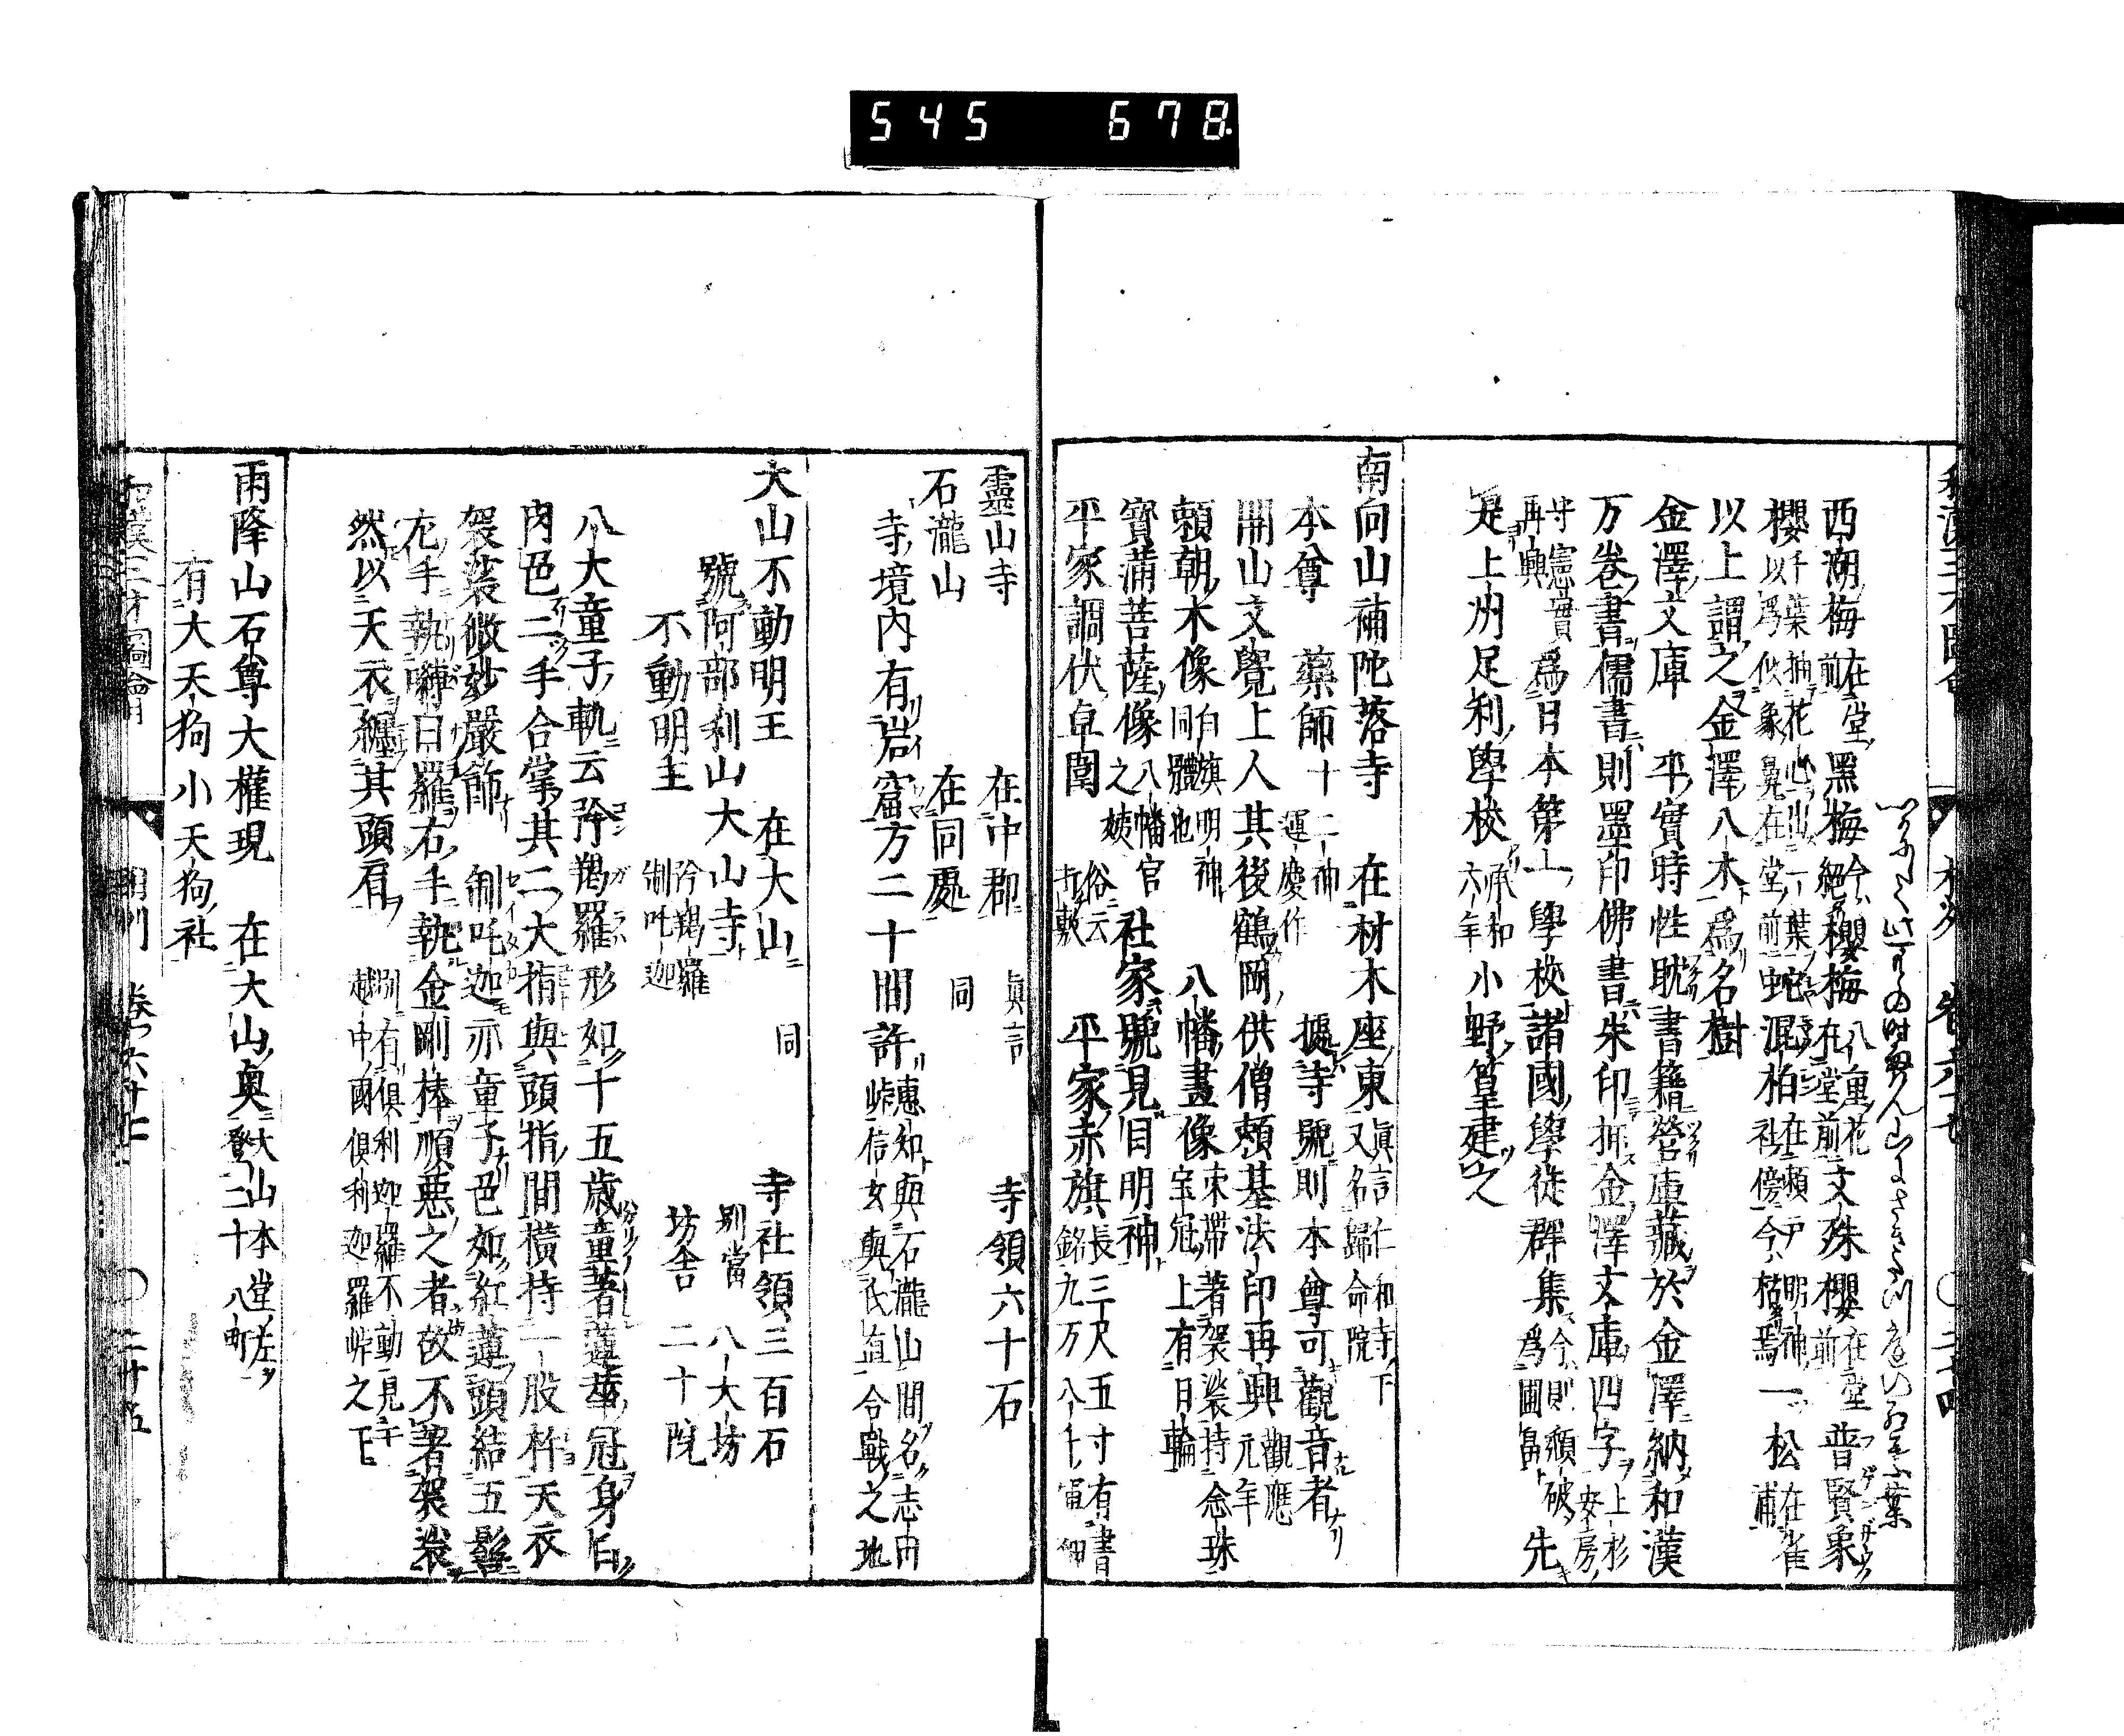 545 678
西湖梅 在堂前 黑梅 今絕 櫻梅 八重花在堂前 文殊櫻 在堂前 普賢象
櫻 千葉抽花心出一葉以爲似象鼻在堂前 蛇混柏 在瀨戸明神社傍今枯焉 一松 在雀浦
以上謂之金澤八木爲名樹
金澤文庫 平實時性耽書籍營庫藏於金澤納和漢
万卷書儒書則墨印佛書朱印押金澤文庫四字 上杉安房
守憲實再興 爲日本第一學校諸國學徒群集 今則頽破爲圃畠 先
是上州足利學校 承和六年 小野篁建之
南向山補陀落寺 在材木座東 眞言仁和寺下又名歸命院
本尊 藥師 十二神運慶作 據寺號則本尊可觀音者
開山文覺上人其後鶴岡供僧賴基法印再興 觀應元年
賴朝木像 白旗明神同體也 八幡畫像 束帶著袈裟持念珠宝冠上有日輪
寶蒲菩薩像 八幡官之嫉 社家號見目明神
平家調伏卓圍 俗云打敷 平家赤旗 長三尺五寸有書銘九万八千軍神
靈山寺 在中郡 眞言 寺領六十石
石瀧山 在同處 同
寺境內有岩窟方二十間許 惠知與石瀧山間名志田峠信玄與氏直合戰之地
大山不動明王 在大山 同 寺社領三百石
號阿部利山大山寺 別當 八大坊
不動明主 矜羯羅制吒迦 坊舍 二十院
八大童子軌云矜羯羅形如十五歲童著蓮華冠身白
肉色二手合掌其二大指與頭指間橫持一股杵天衣
袈裟微妙嚴飾 制吒迦亦童子色如紅蓮頭結五髻
左手執嚩曰羅右手執金剛棒順惡之者故不著袈裟
然以天衣纏其頭肩 別有俱利迦羅不動見于越中國俱利迦羅峠之下
雨降山石尊大權現 在大山奧 大山本堂左登二十八町
有大天狗小天狗社
和漢三才圖會 相州 卷六十七 〇 二十五